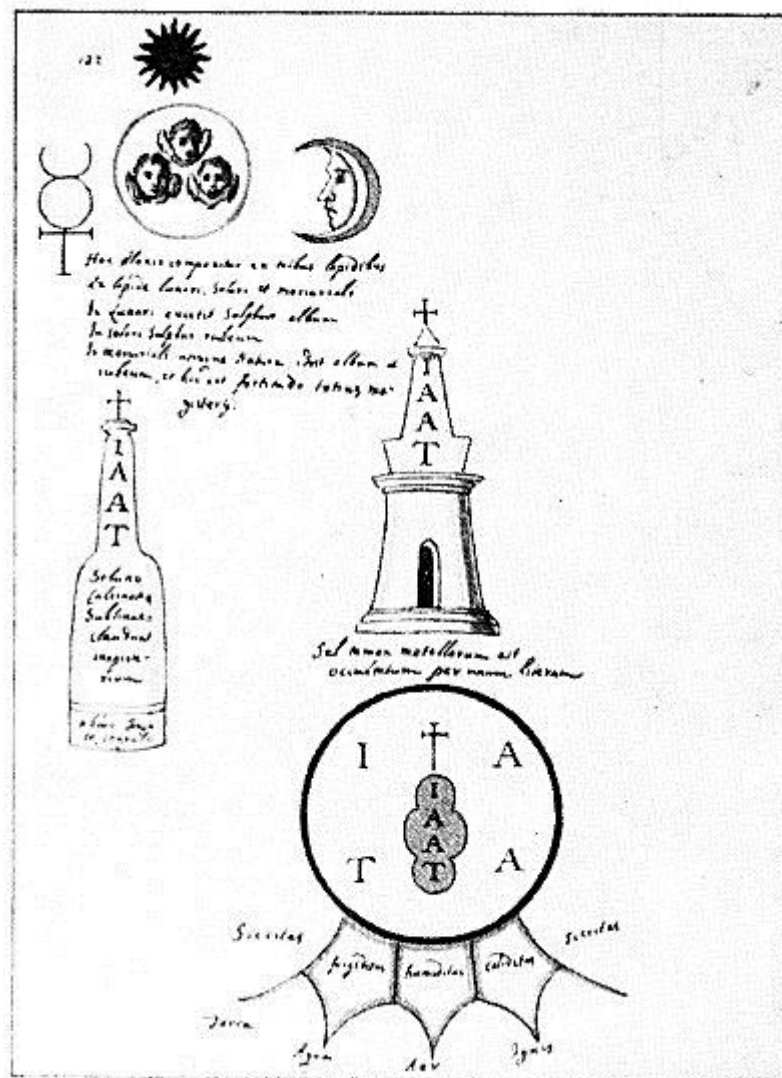 132
Hec olanic componitur ex tribus lapidibus
Ex lapide lunari, solari et mercuriali
In Lunari existit Sulphur album
In solari Sulphur rubeum
In mercuriali utrumque natura, sicut album et
rubeum, et hic est fortitudo totius ma-
gisterij.
I
A
A
T
I
A
A
T
Solvunt
Calcinant
Sublimant
claudunt
Sal tamen metallorum est
occultatum per unam literam
I A
I
A
A
T
T A
Siccitas frigiditas humiditas caliditas Siccitas
Terra
Aqua Aer Ignis